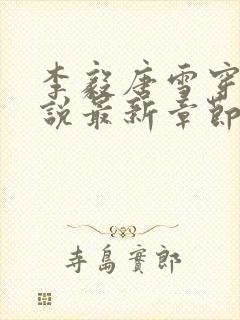 李毅唐雪穿
說最新章節
寺島實郎